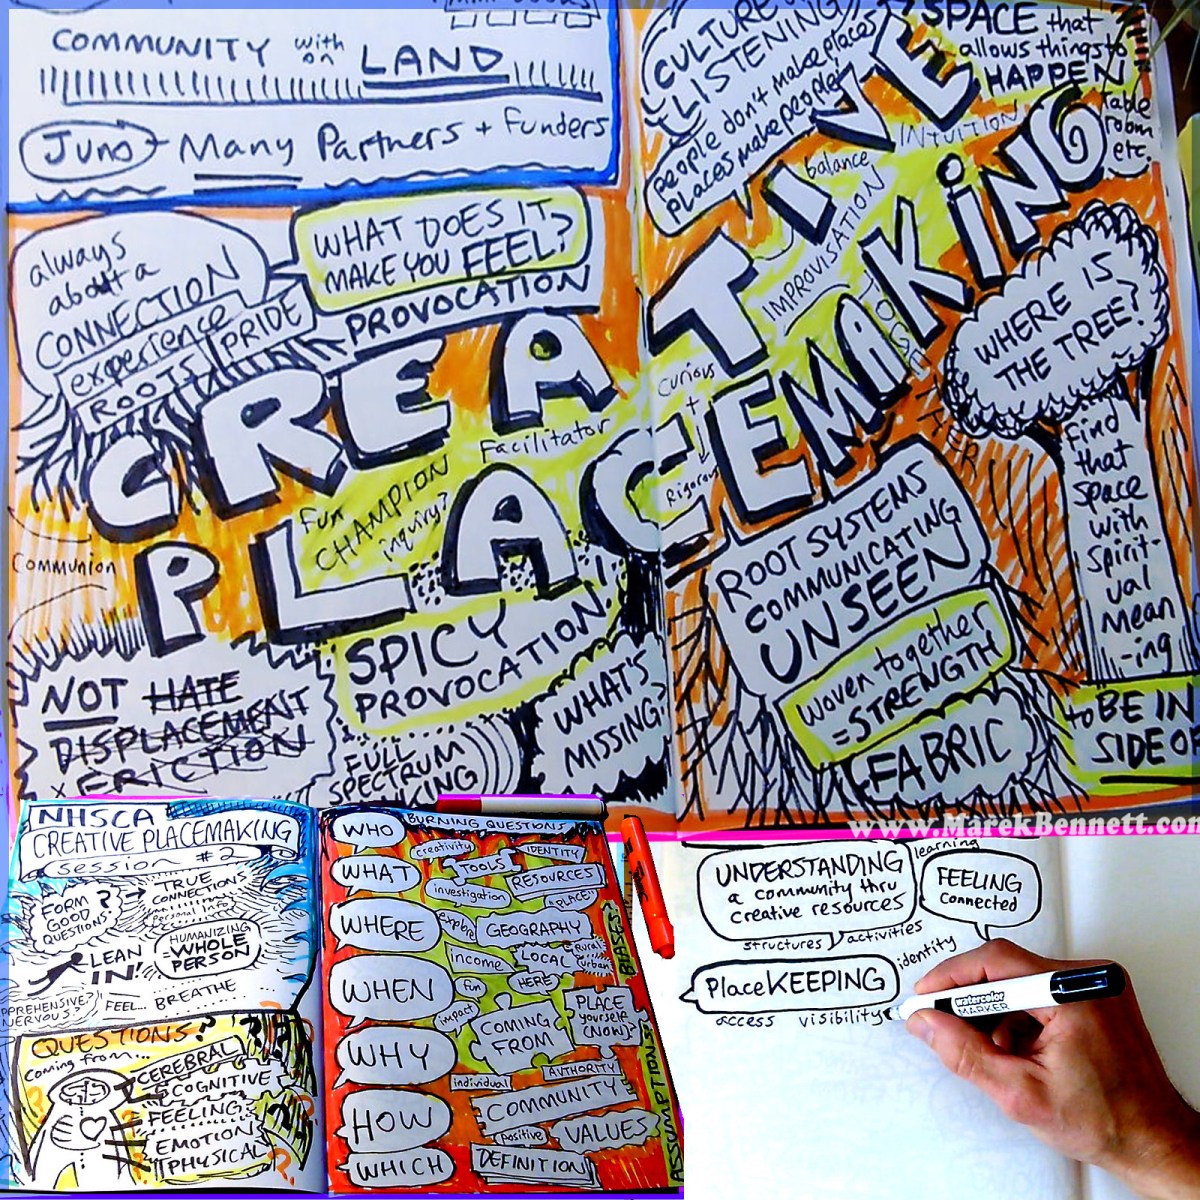 COMMUNITY with on LAND
Juno - Many Partners + Funders
always
about a
CONNECTION
experience
ROOTS
PRIDE
WHAT DOES IT
MAKE YOU FEEL?
PROVOCATION
CULTURE of
LISTENING
people don't make places
places make people!
SPACE that
allows things to
HAPPEN
table
room
etc.
INTUITION
balance
IMPROVISATION
TOGETHER
CREATIVE
PLACEMAKING
Curious
+
Rigorous
Facilitator
FUN
CHAMPION
inquiry?
Communion
WHERE IS
THE TREE?
find
that
space
with
spirit-
ual
mean
-ing
to BE IN
SIDE OF
ROOT SYSTEMS
COMMUNICATING
UNSEEN
woven together
=STRENGTH
FABRIC
SPICY
PROVOCATION
WHAT'S
MISSING?
NOT HATE
DISPLACEMENT
x FRICTION
FULL
SPECTRUM
www.MarekBennett.com
NHSCA
CREATIVE PLACEMAKING
session #2
FORM
GOOD ?
QUESTIONS.
TRUE
CONNECTIONS
Personal Info
LEAN
IN!
HUMANIZING
=WHOLE
PERSON
NERVOUS?
FEEL... BREATHE
QUESTIONS?
coming from...
CEREBRAL
COGNITIVE
FEELING
EMOTION
PHYSICAL
BURNING QUESTIONS
WHO
WHAT
WHERE
WHEN
WHY
HOW
WHICH
creativity
IDENTITY
TOOLS
RESOURCES
investigation
"PLACE"
GEOGRAPHY
income
LOCAL
Rural
urban
fun
HERE
impact
COMING
FROM
PLACE
yourself
(NOW)
individual
AUTHORITY
COMMUNITY
positive
VALUES
DEFINITION
BIASES?
ASSUMPTIONS!
learning
UNDERSTANDING
a community thru
creative resources
FEELING
connected
structures activities
identity
PlaceKEEPING
access visibility
watercolor
MARKER